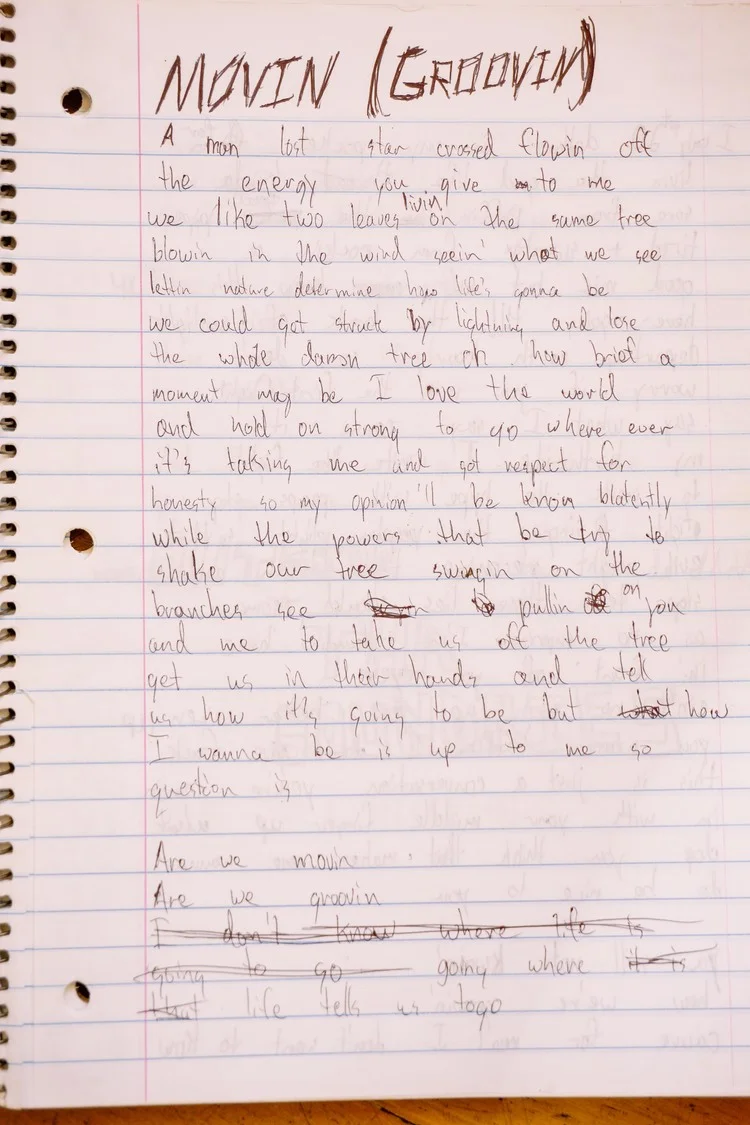 MOVIN (GROOVIN)
A man lost star crossed flowin off
the energy you give to me
we like two leaves livin' on the same tree
blowin in the wind seein' what we see
lettin nature determine how life's gonna be
we could get struck by lightning and lose
the whole damn tree oh how brief a
moment may be I love the world
and hold on strong to go where ever
it's taking me and got respect for
honesty so my opinion'll be known blatently
while the powers that be try to
shake our tree swingin on the
branches see pullin on you
and me to take us off the tree
get us in their hands and tell
us how it's going to be but how
I wanna be is up to me so
question is
Are we movin
Are we groovin
I don't know where life is
going to go going where it is
that life tells us togo